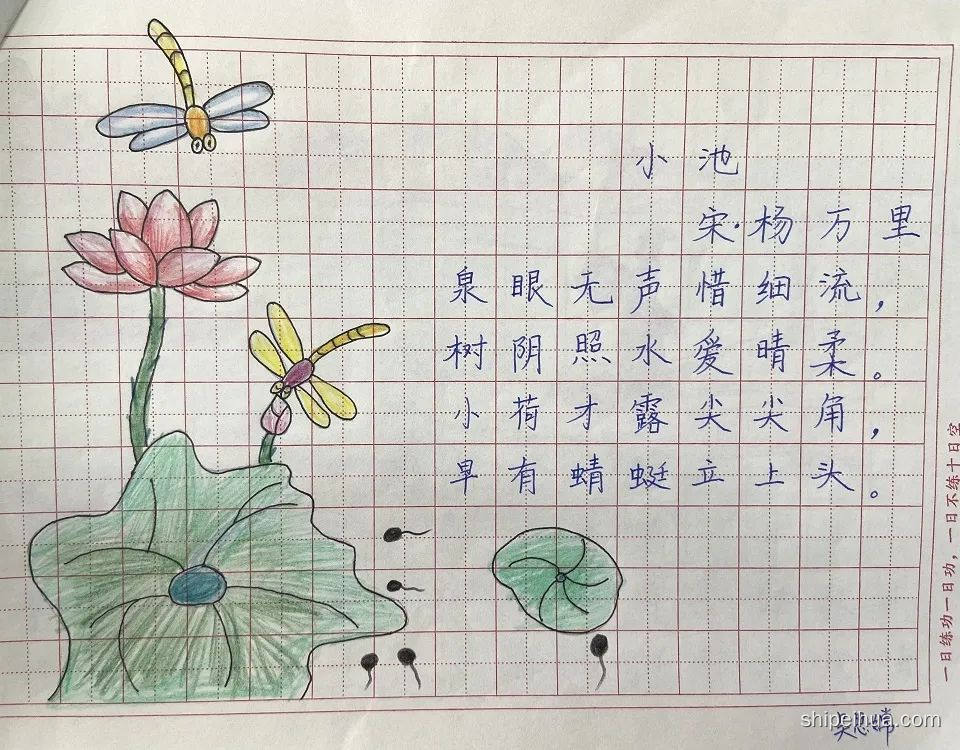 小池
宋·杨万里
泉眼无声惜细流，
树阴照水爱晴柔。
小荷才露尖尖角，
早有蜻蜓立上头。
一日练功一日功，一日不练十日空
shipeihua.com